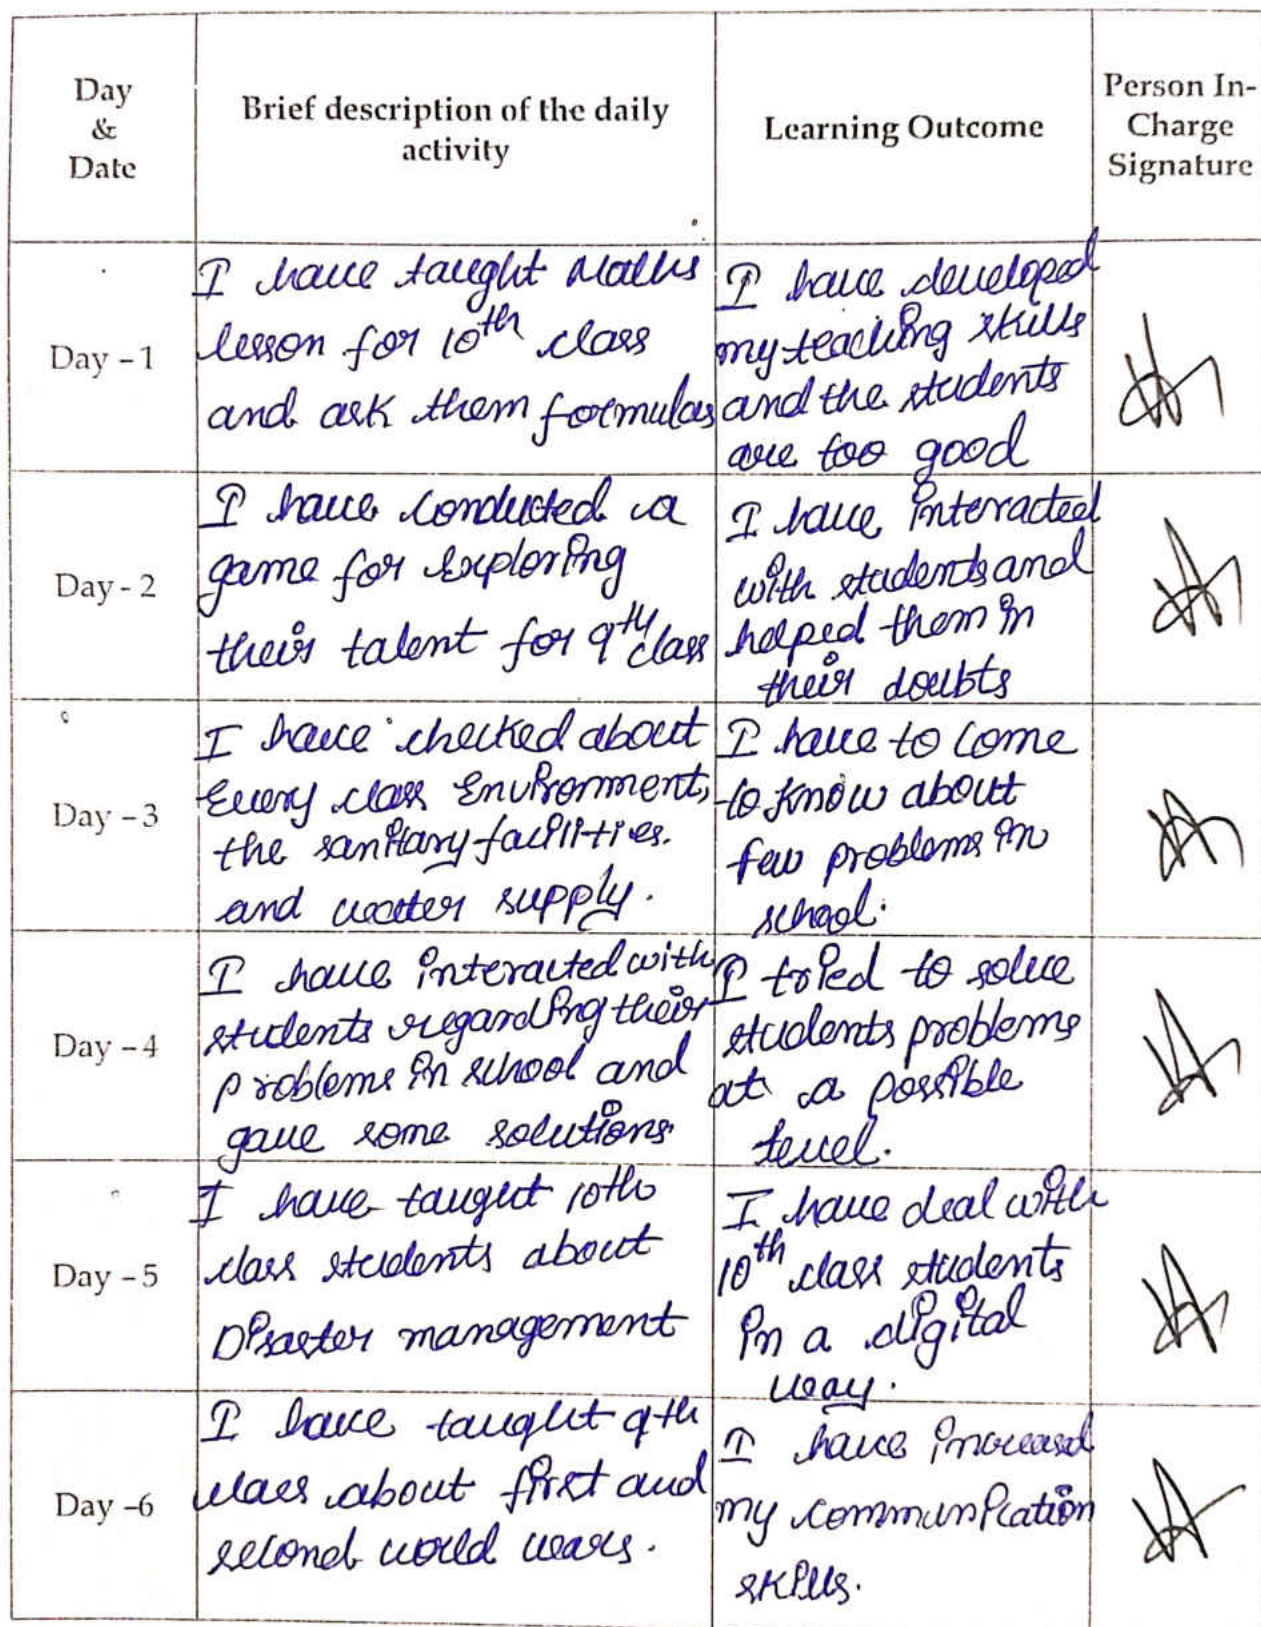 Day
&
Date
Brief description of the daily
activity
Learning Outcome
Person In-
Charge
Signature
Day - 1
I have taught Maths
lesson for 10th class
and ask them formulas
I have developed
my teaching skills
and the students
are too good
Day - 2
I have conducted a
game for exploring
their talent for 9th class
I have interacted
with students and
helped them in
their doubts
Day - 3
I have checked about
Every class Environment,
the sanitary facilities.
and water supply.
I have to come
to know about
few problems in
school.
Day - 4
I have interacted with
students regarding their
problems in school and
gave some solutions
I tried to solve
students problems
at a possible
level.
Day - 5
I have taught 10th
class students about
Disaster management
I have deal with
10th class students
in a digital
way.
Day -6
I have taught 9th
class about first and
second world wars.
I have increased
my communication
skills.